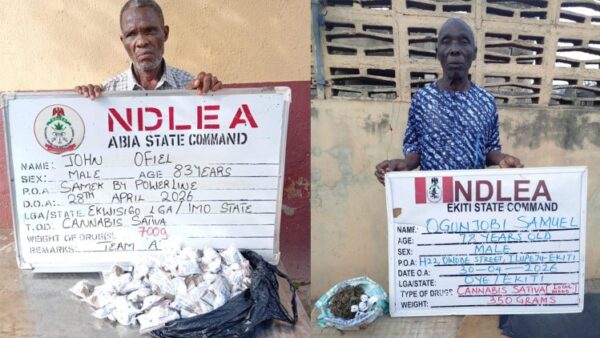 NDLEA
ABIA STATE COMMAND
NAME: JOHN OFIEL
SEX: MALE AGE 83 YEARS
P.O.A: SAMEK BY POWERLINE
D.O.A: 28TH APRIL 2026
LGA/STATE: EKWUSIGO LGA/ IMO STATE
T.O.D: CANNABIS SATIVA
WEIGHT OF DRUG(S) 700g
REMARKS: TEAM A
NDLEA
EKITI STATE COMMAND
NAME: OGUNJOBI SAMUEL
AGE: 72 YEARS OLD
SEX: MALE
P.O.A: STREET, ILUPEJU-EKITI
DATE O.A: 30-04-2026
LGA/STATE: OYE / EKITI
TYPE OF DRUGS: CANNABIS SATIVA
WEIGHT: 350 GRAMS